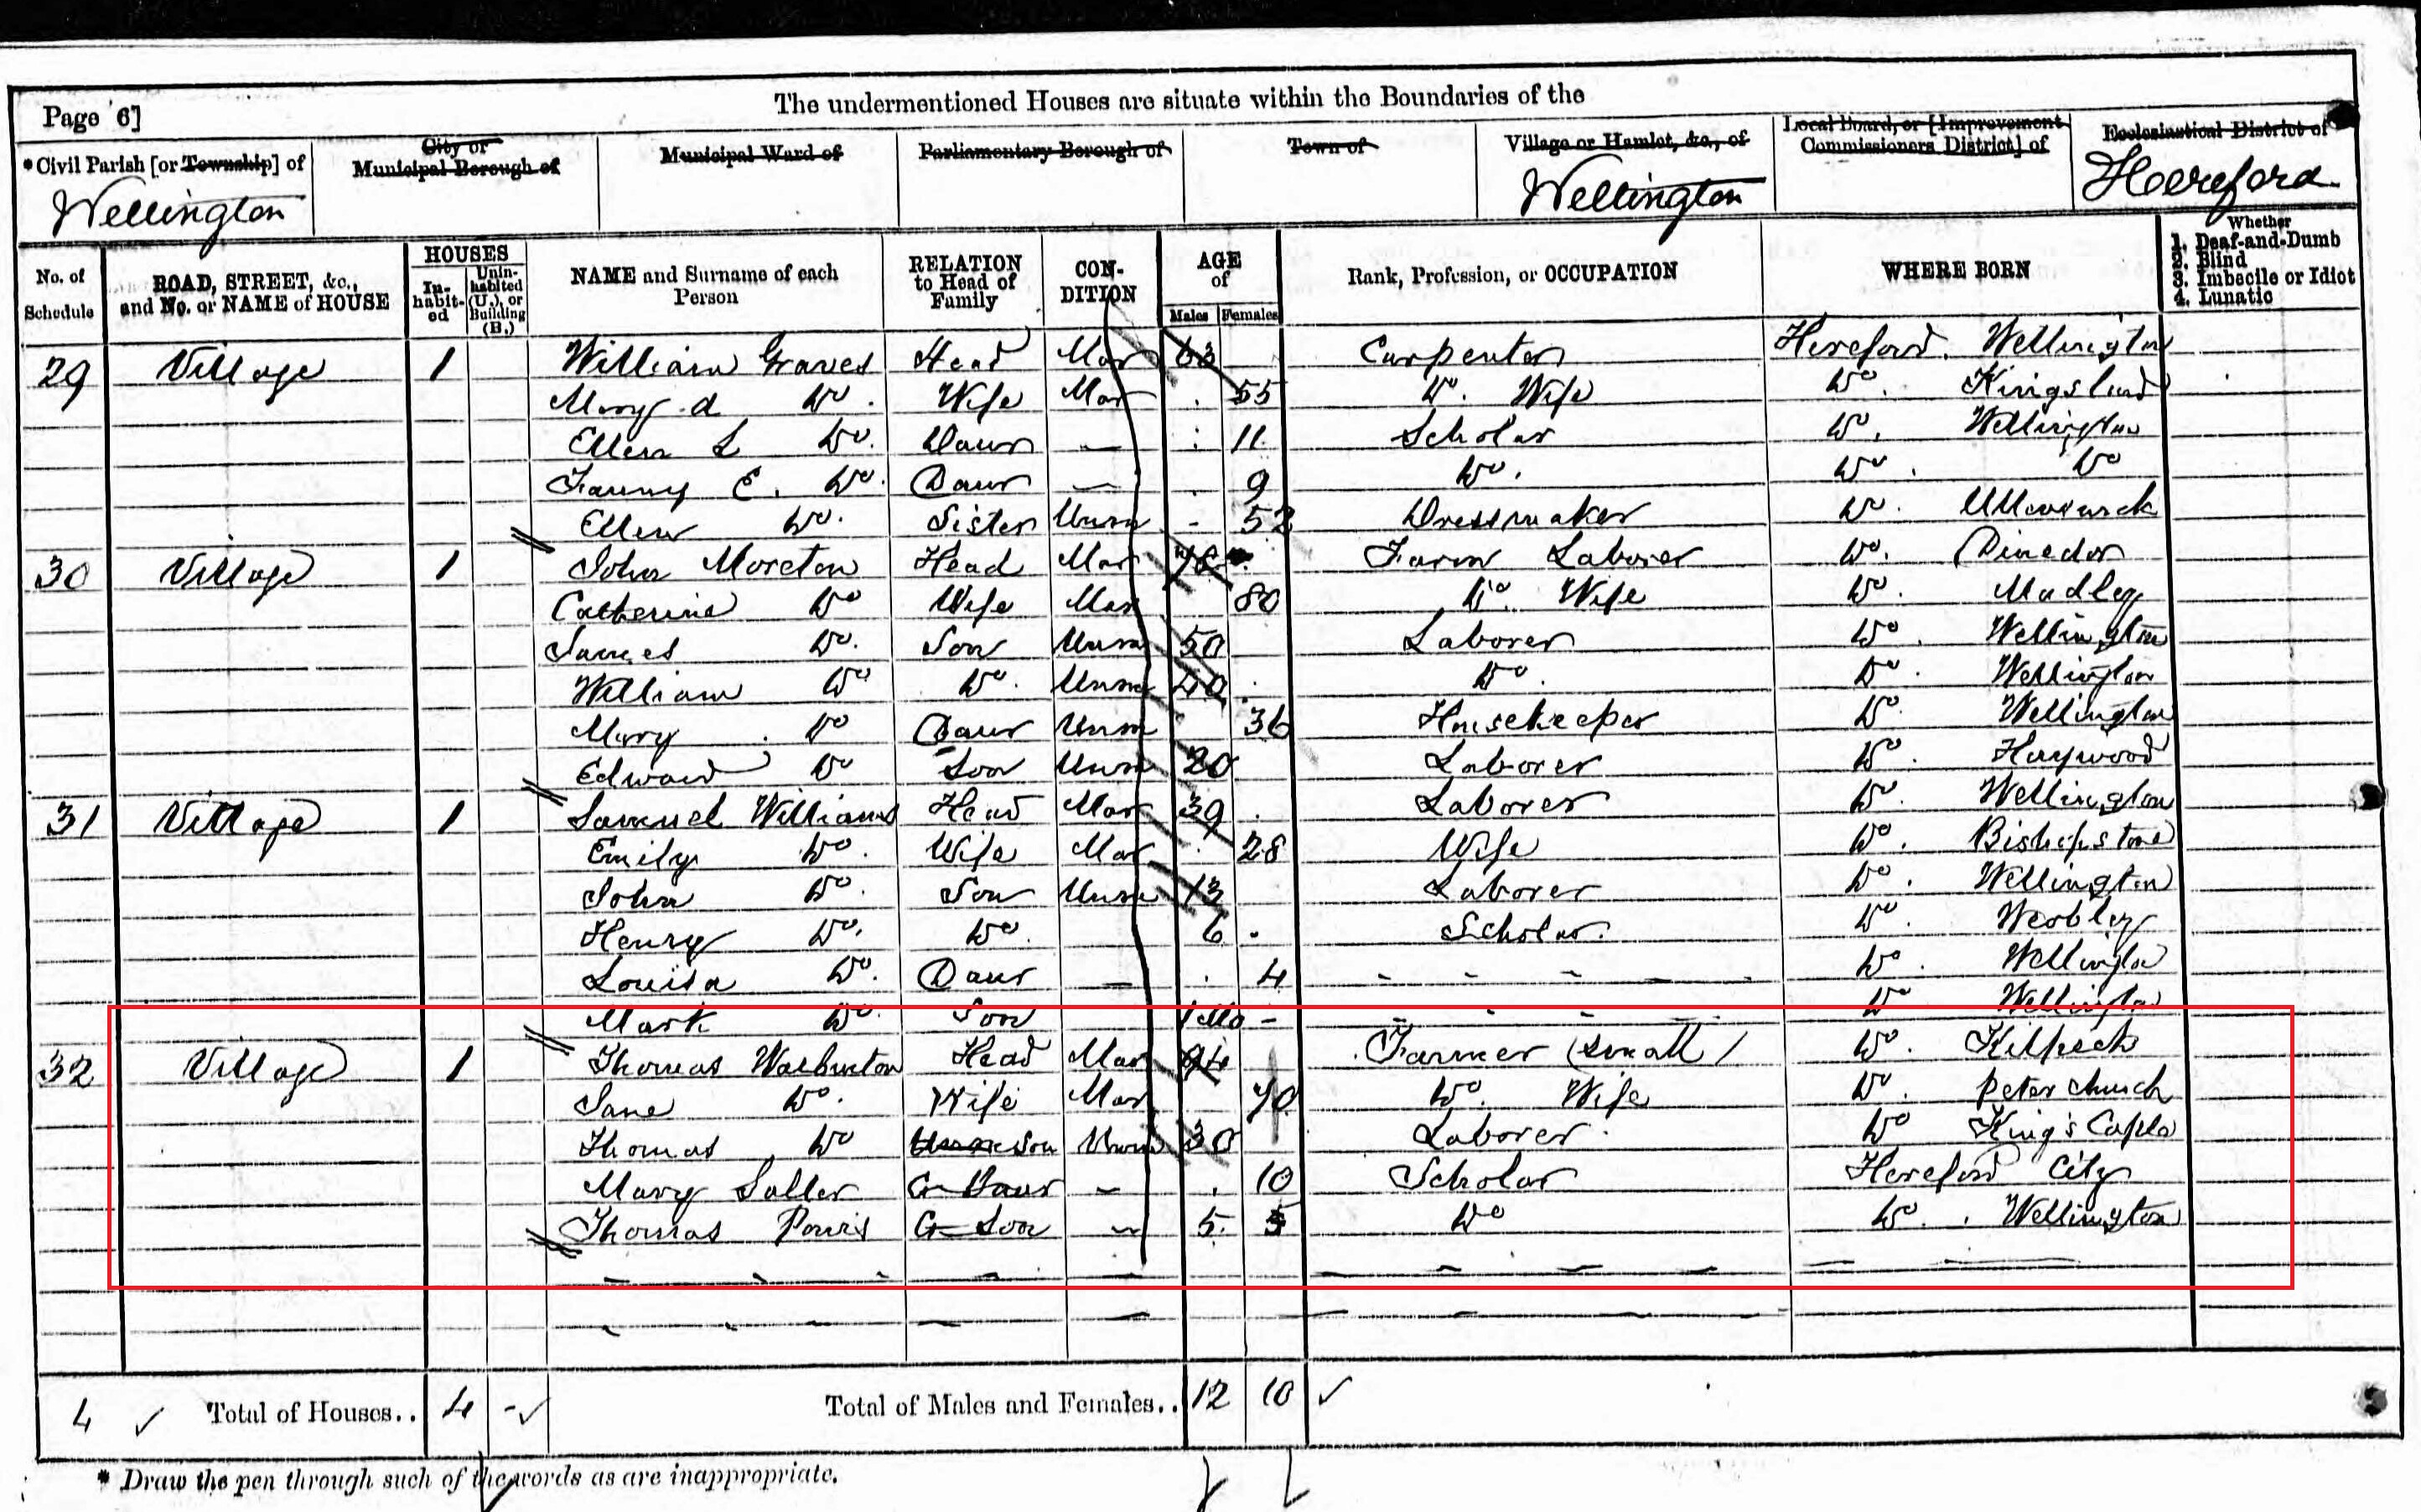 The undermentioned Houses are situate within the Boundaries of the
Page 6]
*Civil Parish [or Township] of
City or Municipal Borough of
Municipal Ward of
Parliamentary Borough of
Town of
Village or Hamlet, &c., of
Local Board, or [Improvement Commissioners District] of
Ecclesiastical District of
Wellington Wellington Hereford
No. of Schedule
ROAD, STREET, &c., and No. or NAME of HOUSE
HOUSES
In-habit-ed
Unin-habited (U.), or Building (B.)
NAME and Surname of each Person
RELATION to Head of Family
CON-DITION
AGE of
Males Females
Rank, Profession, or OCCUPATION
WHERE BORN
Whether
1. Deaf-and-Dumb
2. Blind
3. Imbecile or Idiot
4. Lunatic
29 Village 1 William Graves Head Mar 63 Carpenter Hereford. Wellington
Mary A Do. Wife Mar 55 Do. Wife Do. Kingsland
Ellen L Do. Daur — 11 Scholar Do. Wellington
Fanny E. Do. Daur — 9 Do. Do. Do
Ellen Do. Sister Unm - 52 Dressmaker Do. Ullenswick
30 Village 1 John Moreton Head Mar Farm Laborer Do. Dinedor
Catherine Do Wife Mar 80 Do. Wife Do. Madley
James Do. Son Unm 50 Laborer Do. Wellington
William Do Do. Unm 40 Do. Do. Wellington
Mary Do Daur Unm 36 Housekeeper Do. Wellington
Edward Do Son Unm 20 Laborer Do. Haywood
31 Village 1 Samuel Williams Head Mar 39 Laborer Do. Wellington
Emily Do. Wife Mar 28 Wife Do. Bishopstone
John Do. Son Unm 13 Laborer Do. Wellington
Henry Do. Do. 6 Scholar. Do. Weobley
Louisa Do. Daur — 4 Do. Wellington
Mark Do. Son 1 Mo - Do Wellington
32 Village 1 Thomas Warburton Head Mar Farmer (small) Do. Kilpeck
Jane Do. Wife Mar 70 Do. Wife Do. Peterchurch
Thomas Do Son Unm 30 Laborer Do King's Caple
Mary Saller G-Daur — 10 Scholar Hereford City
Thomas Powis G-Son — 5. 5 Do Do. Wellington
4 Total of Houses.. 4 - Total of Males and Females.. 12 10
* Draw the pen through such of the words as are inappropriate.